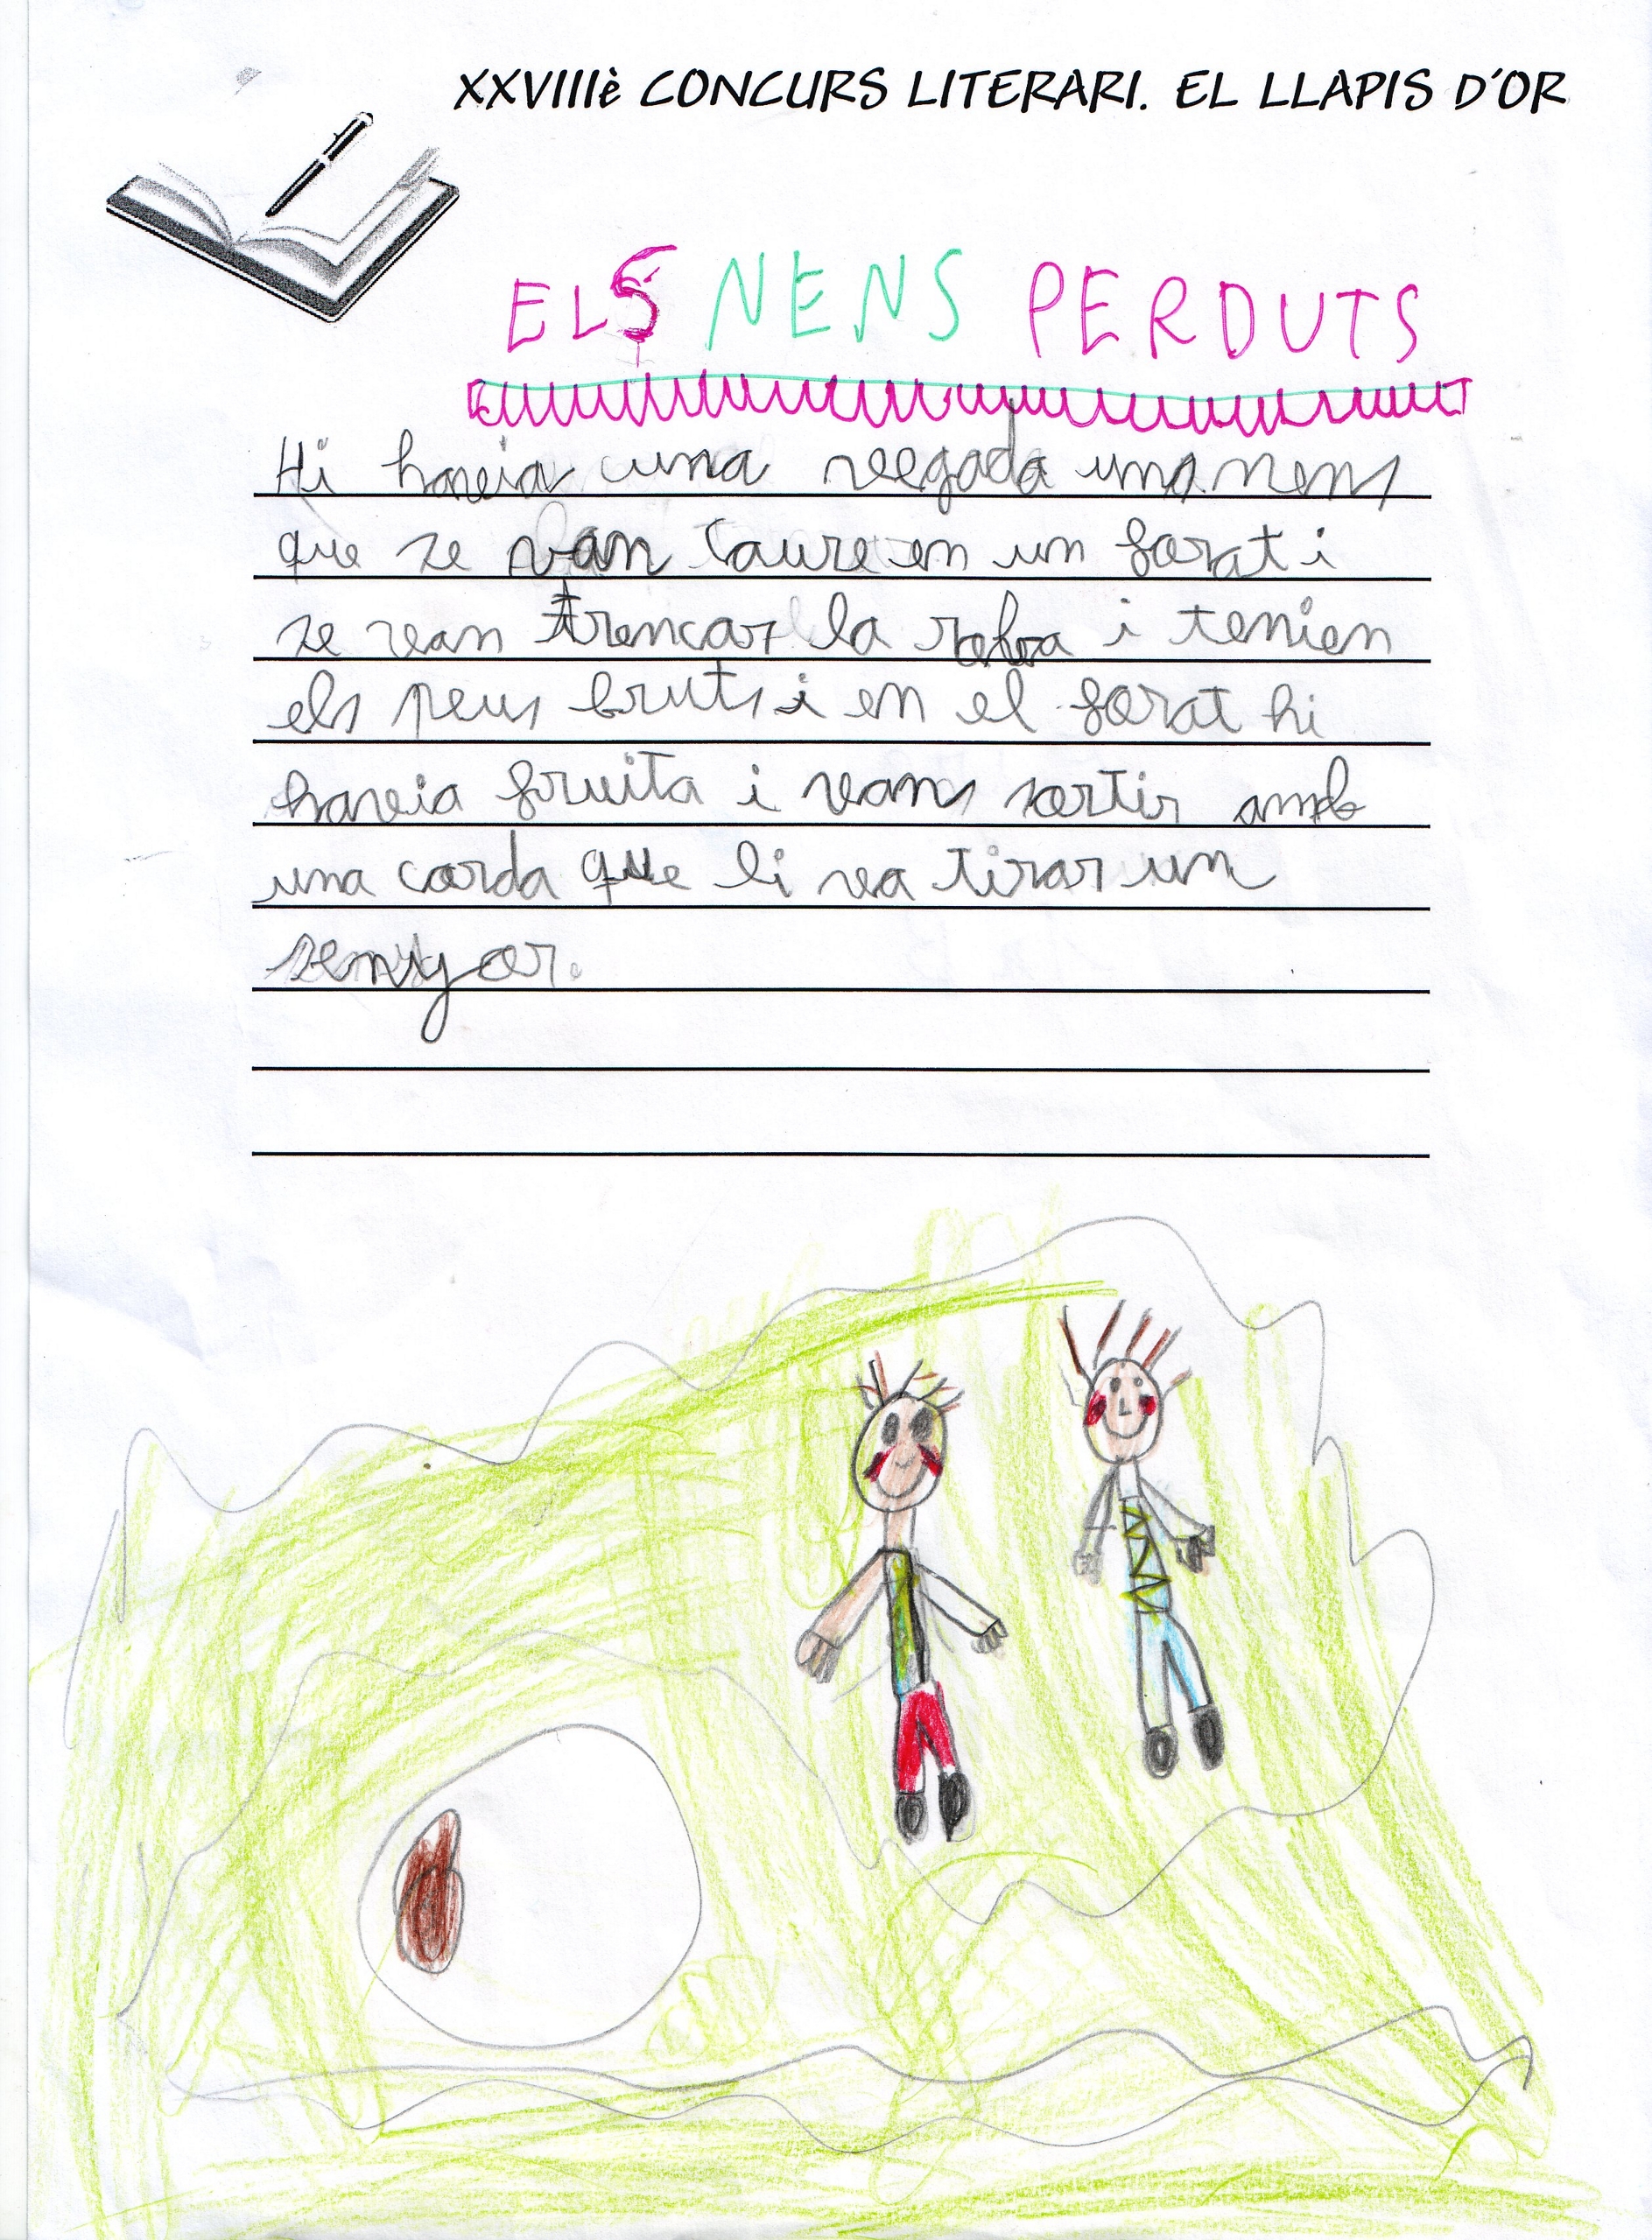 XXVIIIè CONCURS LITERARI. EL LLAPIS D'OR
ELS NENS PERDUTS
Hi havia una vegada uns nens
que se van caure en un forat i
se van trencar la roba i tenien
els peus bruts i en el forat hi
havia fruita i vans sortir amb
una corda que li va tirar un
senyor.